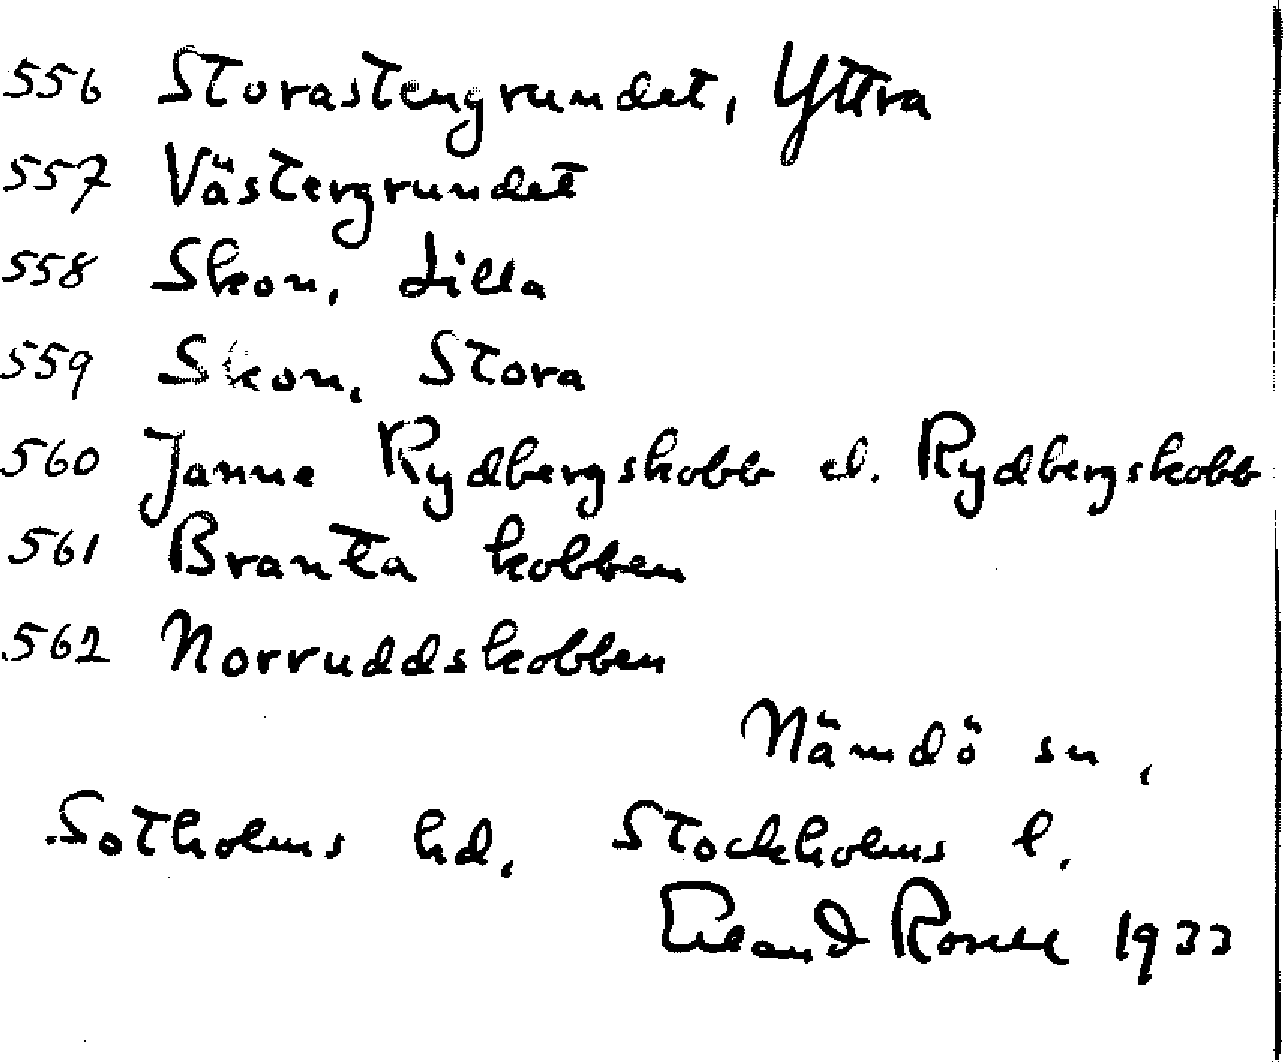 556 Storastengrundet, Yttra
557 Västergrundet
558 Skon, Lilla
559 Skon, Stora
560 Janne Rydbergskobb el. Rydbergskobb
561 Branta kobben
562 Norruddskobben
Nämdö sn,
Sotholms hd. Stockholms l.
Erland Rosell 1933